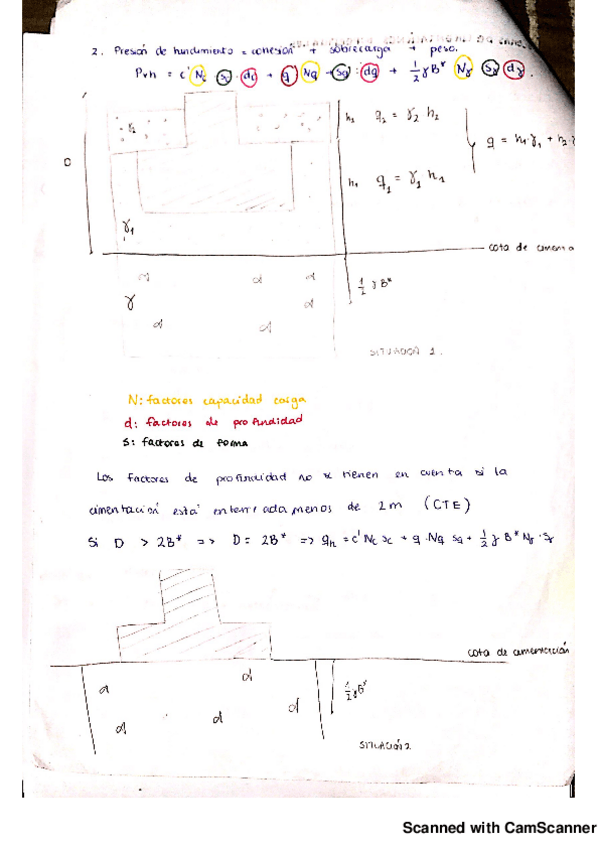 2. Presión de hundimiento = cohesión + sobrecarga + peso.
Pvh = c' Nc · sc · dc + q Nq · sq · dq + 1/2 γ B* Nγ sγ dγ.
γ2
h2 q2 = γ2 h2
q = h1 · γ1 + h2 ·
D
h1 q1 = γ1 h1
γ1
cota de cimenta
γ
1/2 γ B*
SITUACIÓN 1.
N: factores capacidad carga
d: factores de profundidad
s: factores de forma
Los factores de profundidad no se tienen en cuenta si la
cimentación está enterrada menos de 2m (CTE)
Si D > 2B* => D = 2B* => qh = c' Nc sc + q · Nq sq + 1/2 γ B* Nγ · sγ
cota de cimentación
1/2 γ B*
SITUACIÓN 2
Scanned with CamScanner